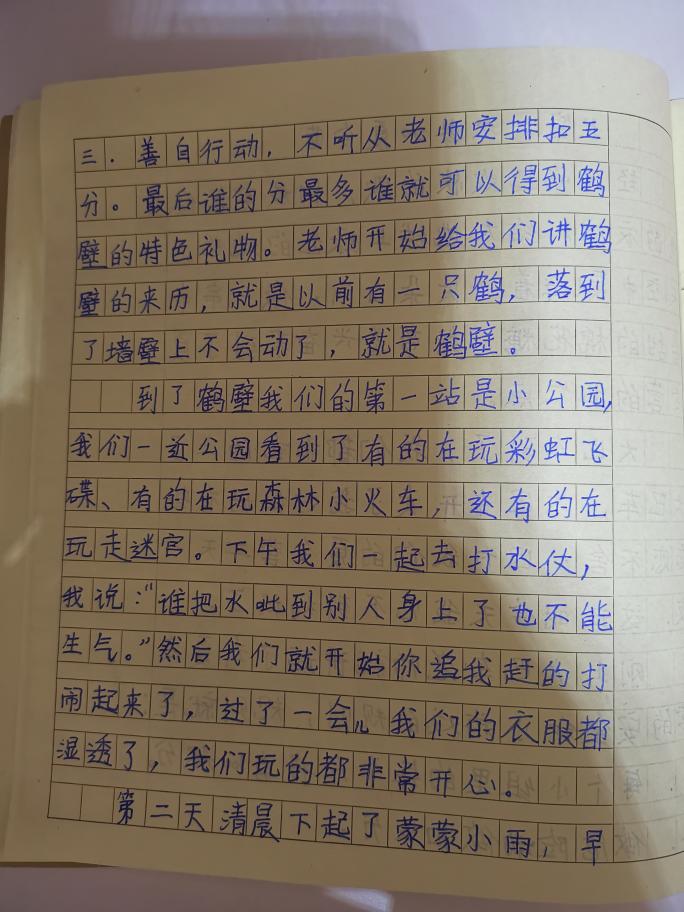 三．善自行动，不听从老师安排扣五
分。最后谁的分最多谁就可以得到鹤
壁的特色礼物。老师开始给我们讲鹤
壁的来历，就是以前有一只鹤，落到
了墙壁上不会动了，就是鹤壁。
到了鹤壁我们的第一站是小公园，
我们一近公园看到了有的在玩彩虹飞
碟、有的在玩森林小火车，还有的在
玩走迷宫。下午我们一起去打水仗，
我说：“谁把水呲到别人身上了也不能
生气。”然后我们就开始你追我赶的打
闹起来了，过了一会儿我们的衣服都
湿透了，我们玩的都非常开心。
第二天清晨下起了蒙蒙小雨，早